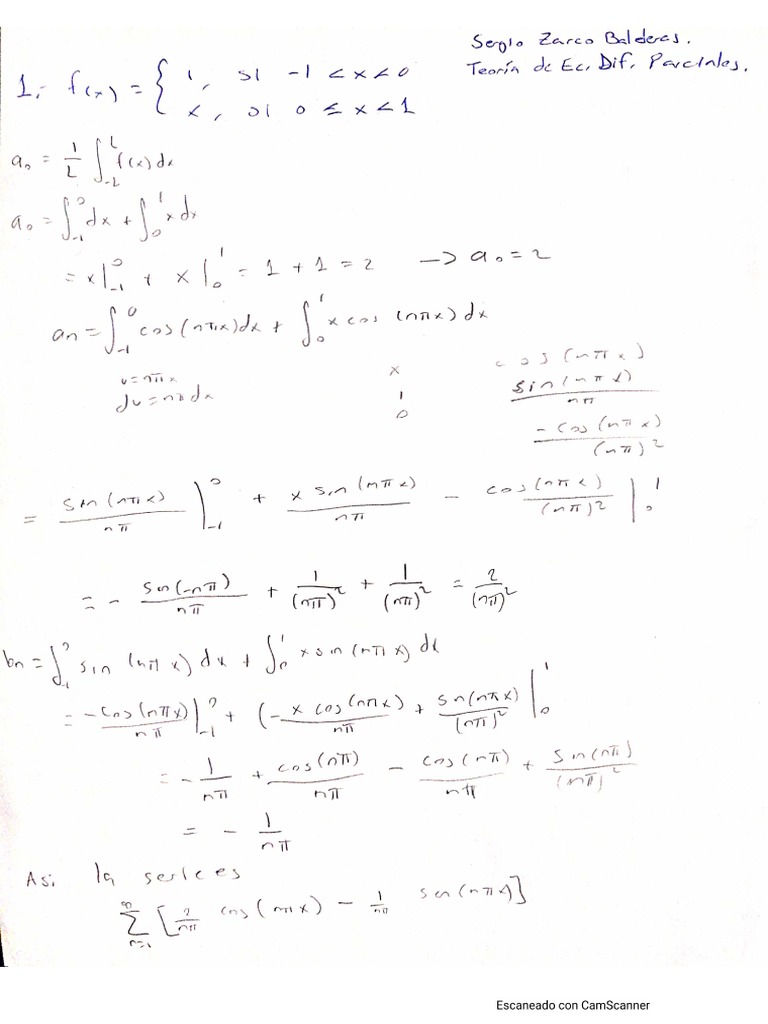 Sergio Zarco Balderas.
Teoría de Ec. Dif. Parciales.
1.- f(x) = { 1, si -1 < x < 0
x, si 0 ≤ x < 1
a₀ = 1/L ∫_{-L}^{L} f(x) dx
a₀ = ∫_{-1}^{0} dx + ∫_{0}^{1} x dx
= x|_{-1}^{0} + x|_{0}^{1} = 1 + 1 = 2 → a₀ = 2
an = ∫_{-1}^{0} cos(nπx) dx + ∫_{0}^{1} x cos(nπx) dx
u = nπx
du = nπ dx
x cos(nπx)
1 sin(nπx)/nπ
0 -cos(nπx)/(nπ)²
= sin(nπx)/nπ |_{-1}^{0} + x sin(nπx)/nπ - cos(nπx)/(nπ)² |_{0}^{1}
= - sin(-nπ)/nπ + 1/(nπ)² + 1/(nπ)² = 2/(nπ)²
bn = ∫_{-1}^{0} sin(nπx) dx + ∫_{0}^{1} x sin(nπx) dx
= -cos(nπx)/nπ |_{-1}^{0} + (-x cos(nπx)/nπ + sin(nπx)/(nπ)² |_{0}^{1}
= - 1/nπ + cos(nπ)/nπ - cos(nπ)/nπ + sin(nπ)/(nπ)²
= - 1/nπ
Asi la serie es
∑_{n=1}^{∞} [2/nπ cos(nπx) - 1/nπ sen(nπx)]
Escaneado con CamScanner